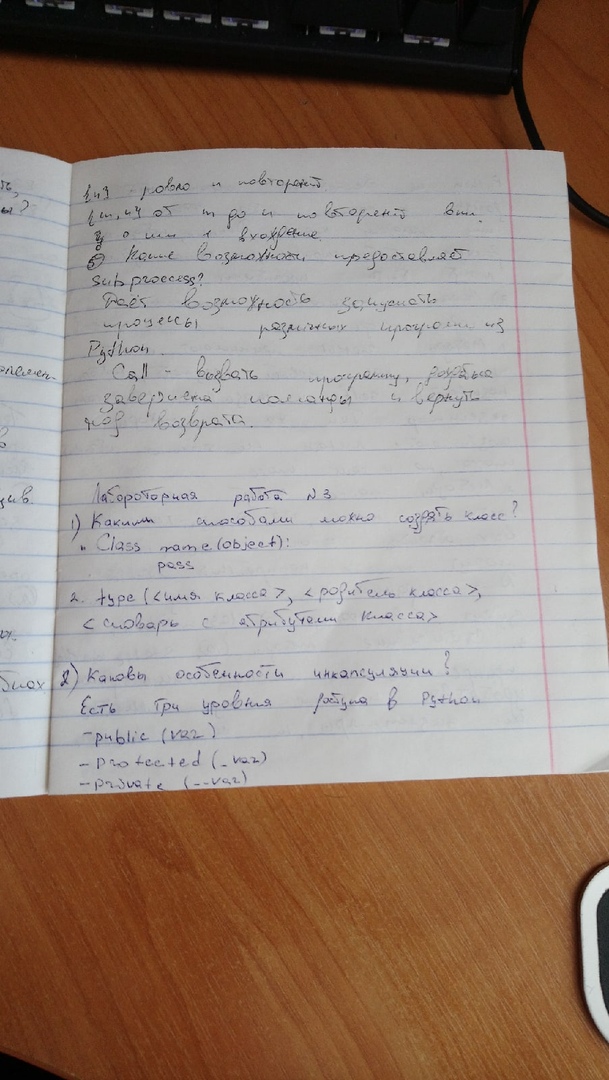 {n} ровно n повторений
{m,n} от m до n повторений вкл.
5) Какие возможности предоставляет
subproccess?
Даёт возможность запускать
процессы различных программ из
Python.
Call - вызвать программу,
завершения команды и вернуть
код возврата.
Лабораторная работа №3
1) Какими способами можно создать класс?
Class name(object):
pass
2. type (<имя класса>, <родитель класса>,
<словарь с атрибутами класса>
2) Каковы особенности инкапсуляции?
Есть три уровня доступа в Python
-public (var)
-protected (_var)
-private (__var)